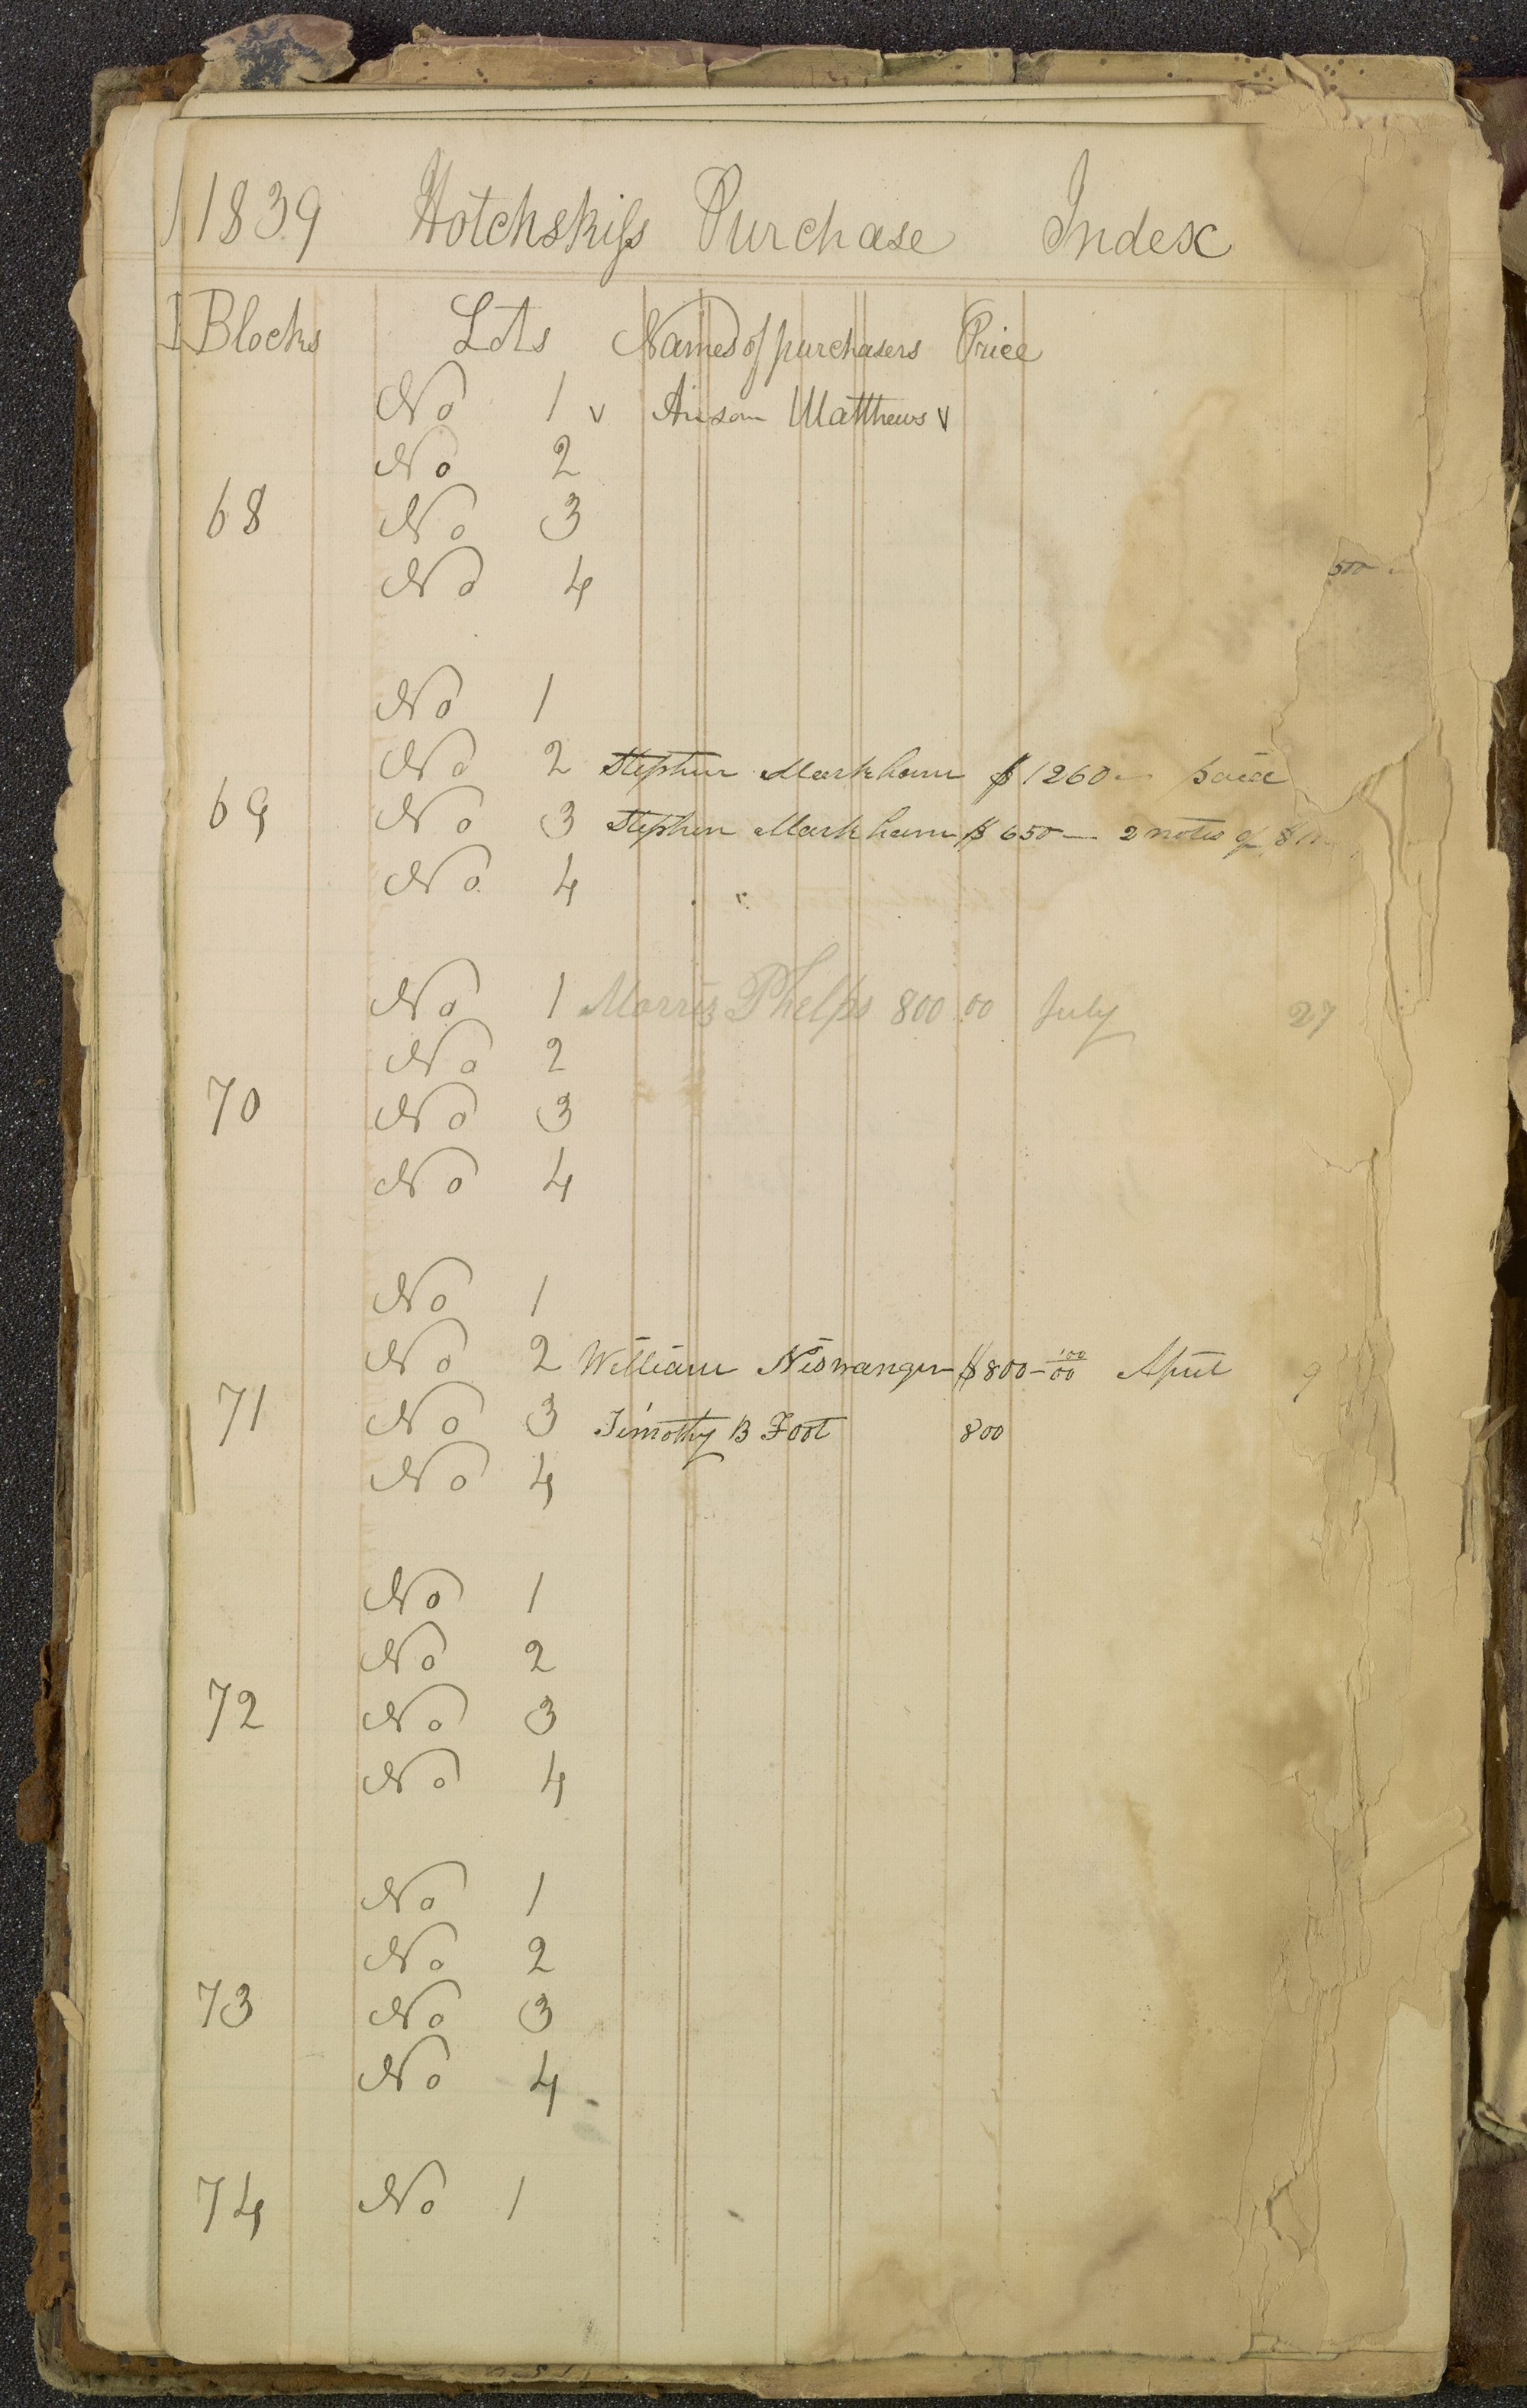 1839 Hotchskiss Purchase Index
Blocks Lots Names of purchasers Price
No 1 v Anson Matthews v
No 2
68 No 3
No 4
500
No 1
No 2 Stephen Markham $1260 — paid
69 No 3 Stephen Markham $650 — 2 notes of
No 4
No 1 Morris Phelps 800.00 July 27
No 2
70 No 3
No 4
No 1
No 2 William Niswanger $800-100/00 April 9
71 No 3 Timothy B Foot 800
No 4
No 1
No 2
72 No 3
No 4
No 1
No 2
73 No 3
No 4
74 No 1